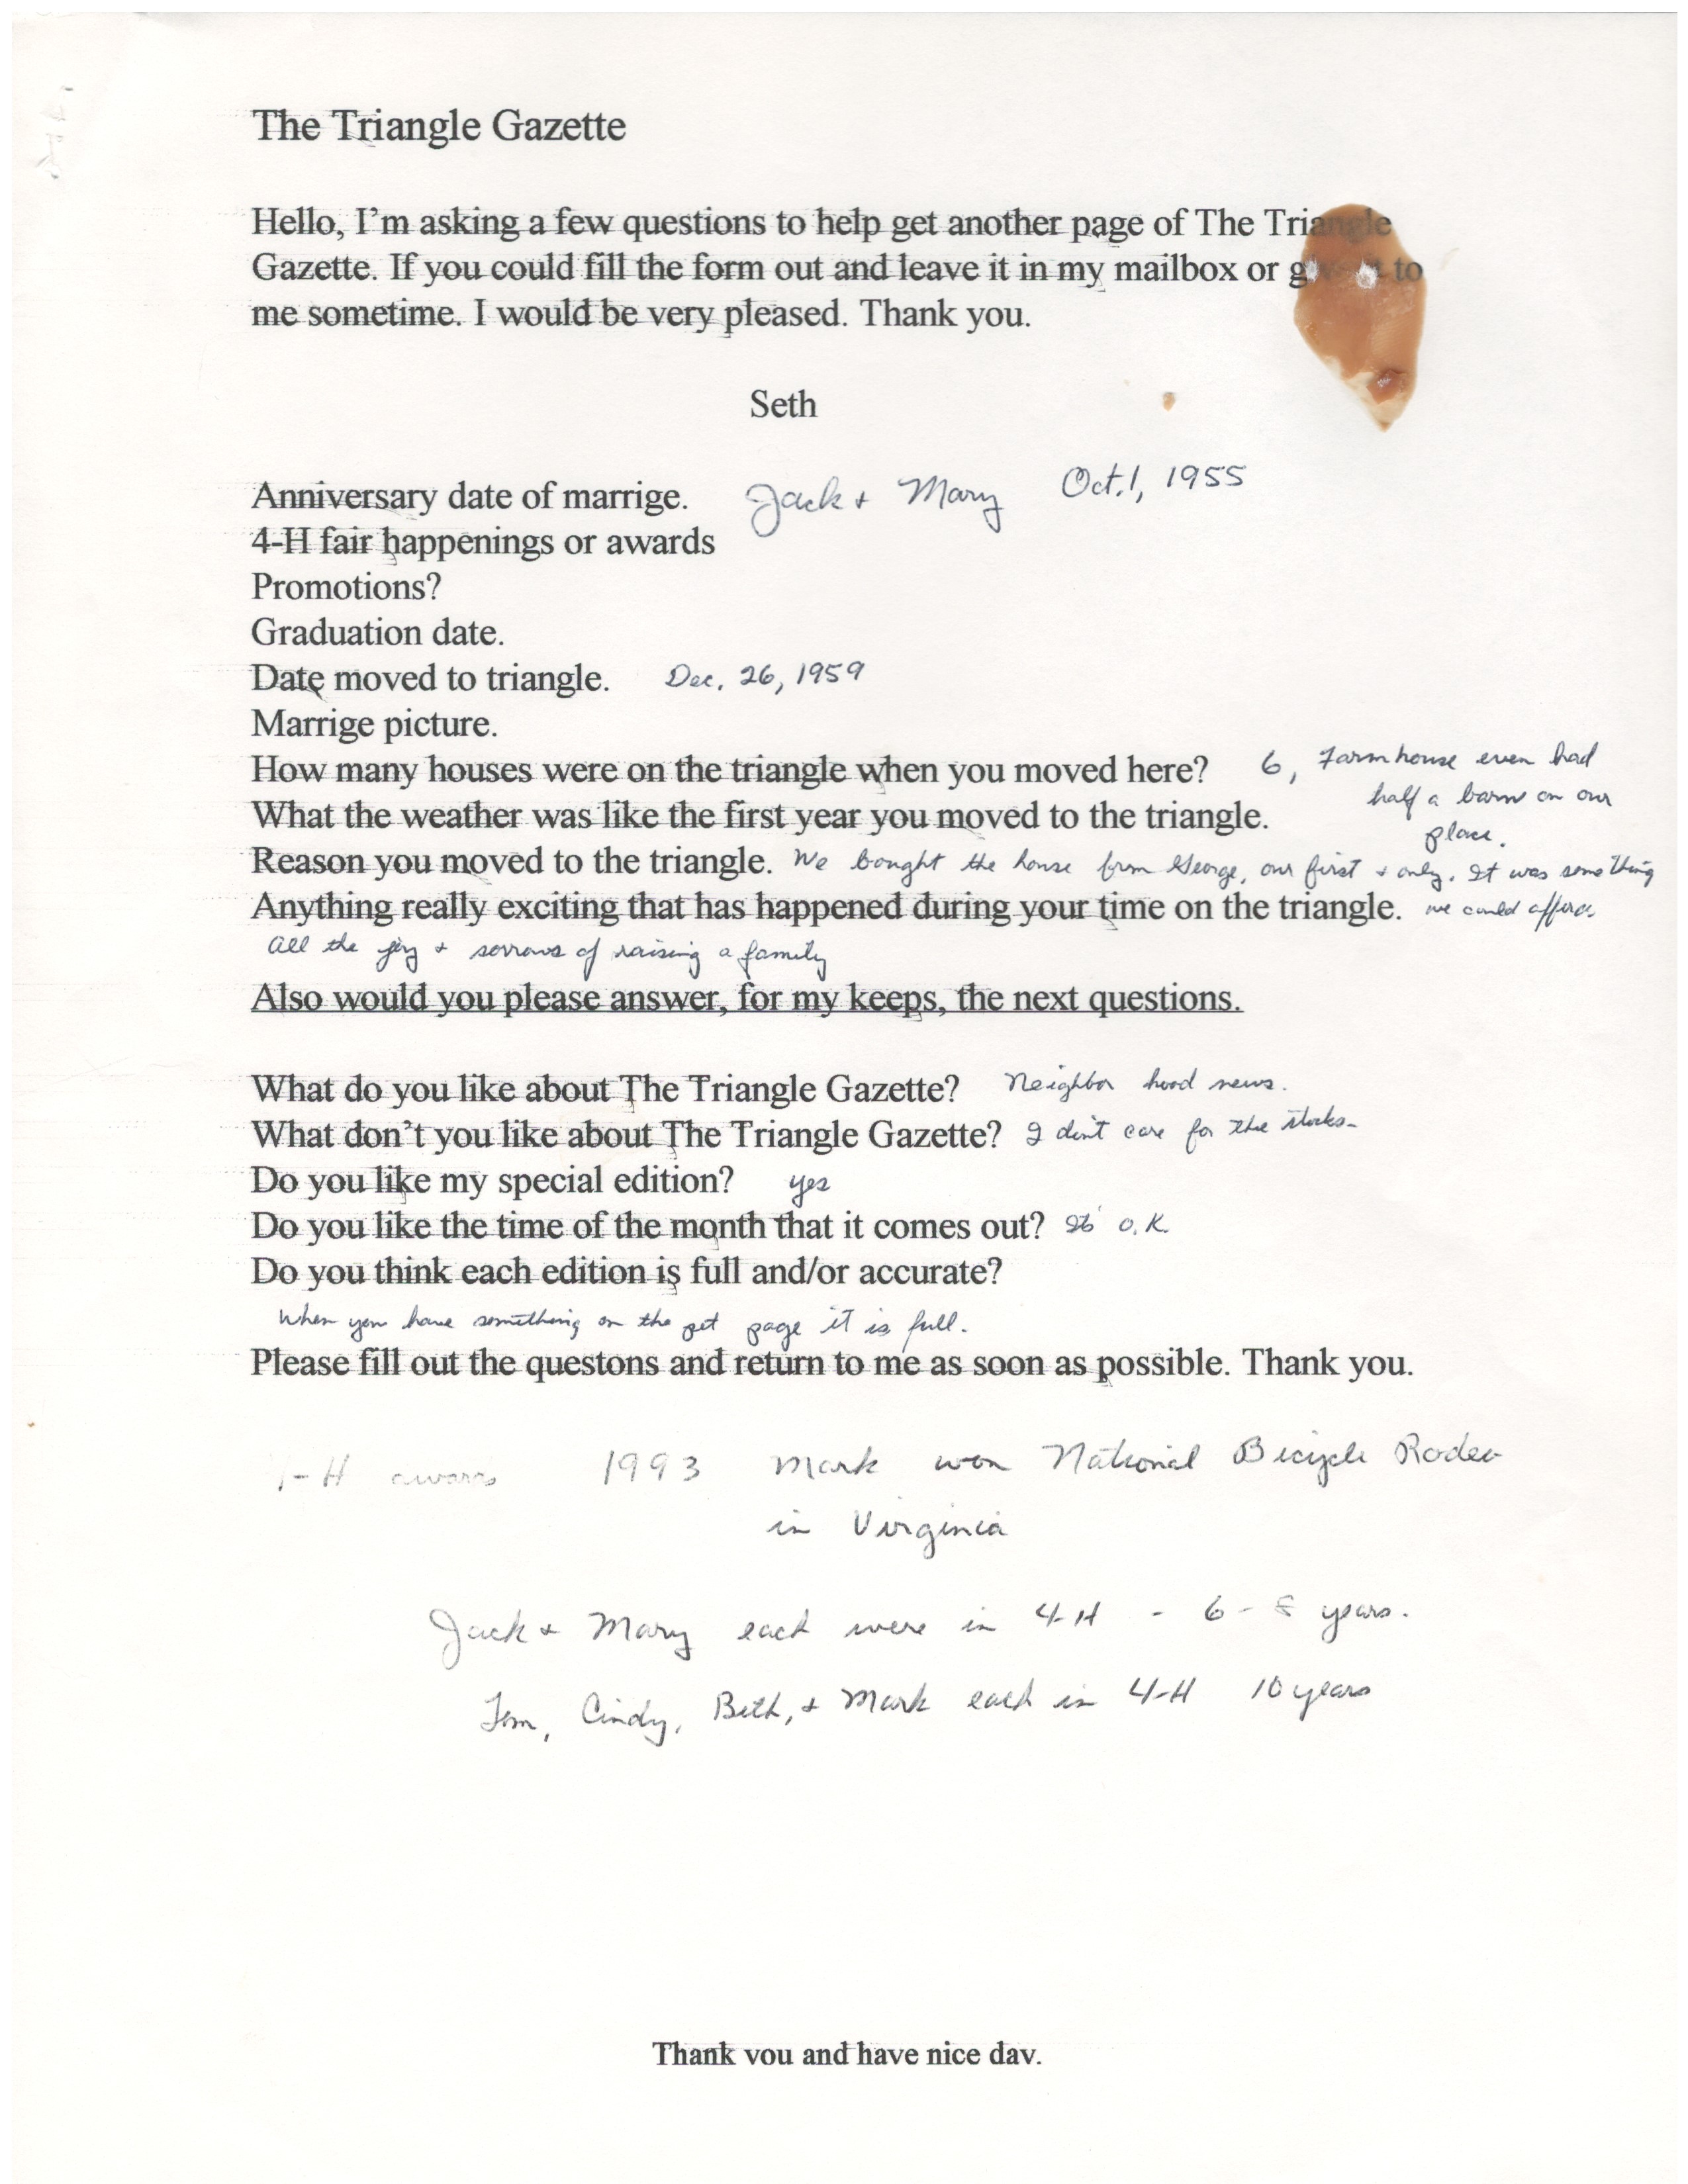 The Triangle Gazette
Hello, I'm asking a few questions to help get another page of The Triangle
Gazette. If you could fill the form out and leave it in my mailbox or to
me sometime. I would be very pleased. Thank you.
Seth
Anniversary date of marrige. Jack + Mary Oct. 1, 1955
4-H fair happenings or awards
Promotions?
Graduation date.
Date moved to triangle. Dec. 26, 1959
Marrige picture.
How many houses were on the triangle when you moved here? 6, Farmhouse even had
half a barn on our
What the weather was like the first year you moved to the triangle.
place.
Reason you moved to the triangle. We bought the house from George, our first + only. It was something
Anything really exciting that has happened during your time on the triangle. we could afford.
All the joy + sorrows of raising a family
Also would you please answer, for my keeps, the next questions.
What do you like about The Triangle Gazette? Neighbor hood news.
What don't you like about The Triangle Gazette? I don't care for the stocks.
Do you like my special edition? yes
Do you like the time of the month that it comes out? Its O.K.
Do you think each edition is full and/or accurate?
When you have something on the pet page it is full.
Please fill out the questons and return to me as soon as possible. Thank you.
4-H awards 1993 Mark won National Bicycle Rodeo
in Virginia
Jack + Mary each were in 4-H - 6 - 8 years.
Tom, Cindy, Beth, + Mark each in 4-H 10 years
Thank you and have nice day.